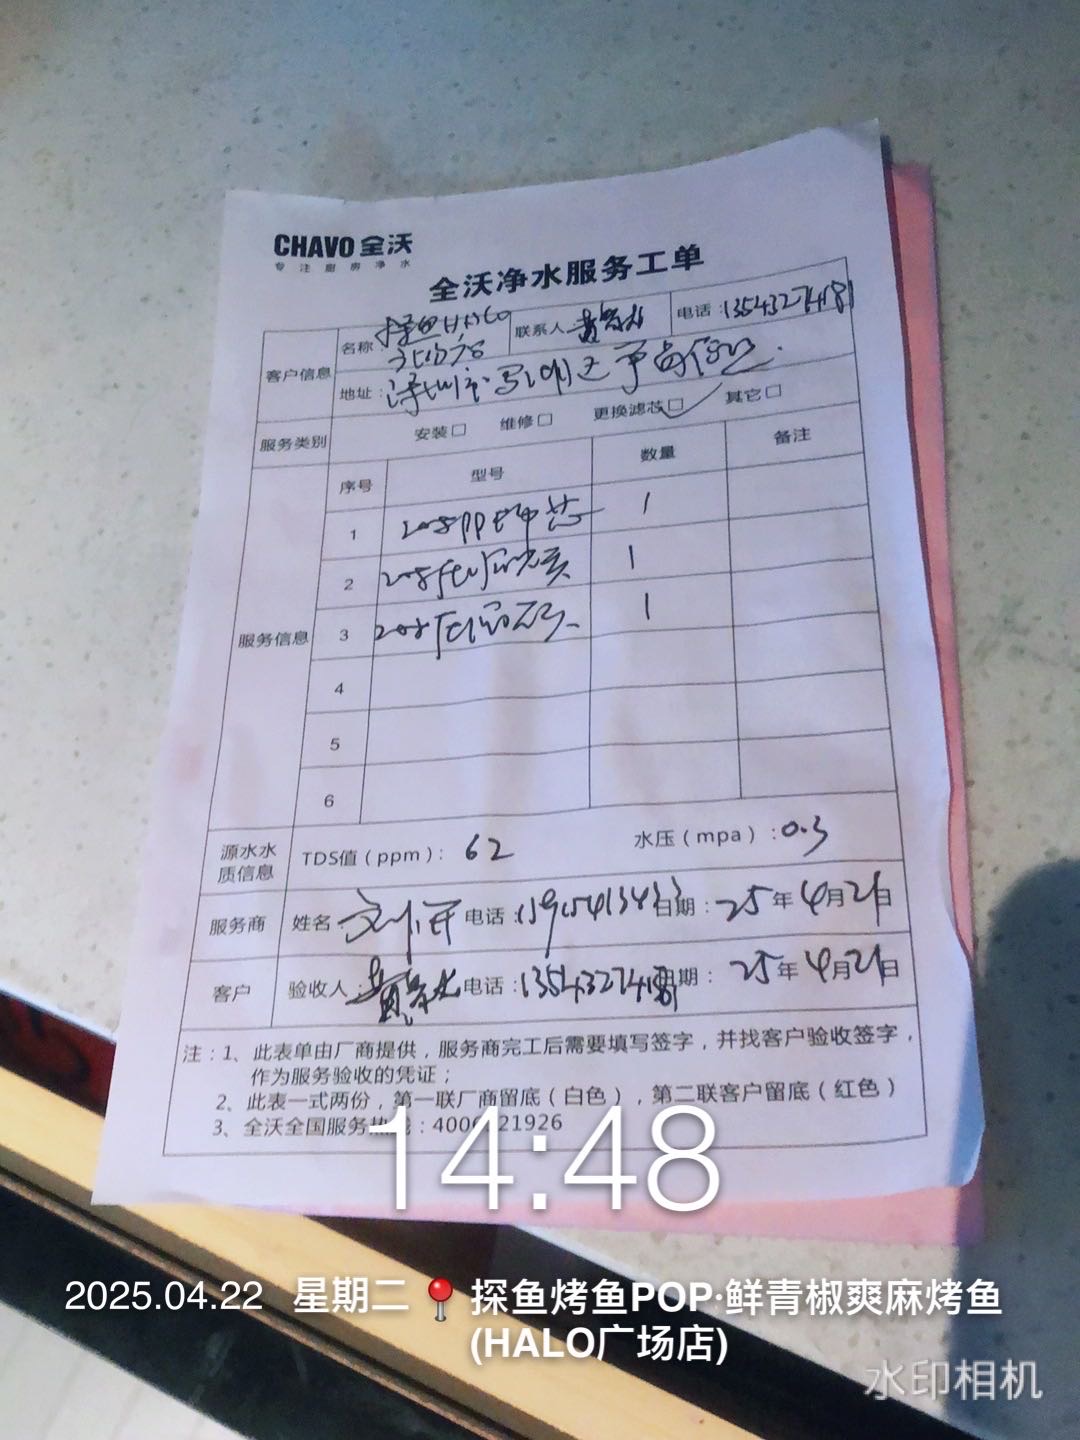 CHAVO 全沃
专注厨房净水
全沃净水服务工单
客户信息
名称: 探鱼HALO
广场店
联系人
电话:13543274181
地址: 深圳市
服务类别
安装□ 维修□ 更换滤芯□✓ 其它□
服务信息
序号 型号 数量 备注
1 205PP 芯 1
2 205 1
3 205 1
4
5
6
源水水质信息
TDS值(ppm): 62 水压(mpa):0.3
服务商 姓名: 电话: 日期: 25年4月21日
客户 验收人: 电话: 日期: 25年4月21日
注:1、此表单由厂商提供,服务商完工后需要填写签字,并找客户验收签字,
作为服务验收的凭证;
2、此表一式两份,第一联厂商留底(白色),第二联客户留底(红色)
3、全沃全国服务热线:400 21926
14:48
2025.04.22 星期二 探鱼烤鱼POP·鲜青椒爽麻烤鱼
(HALO广场店)
水印相机